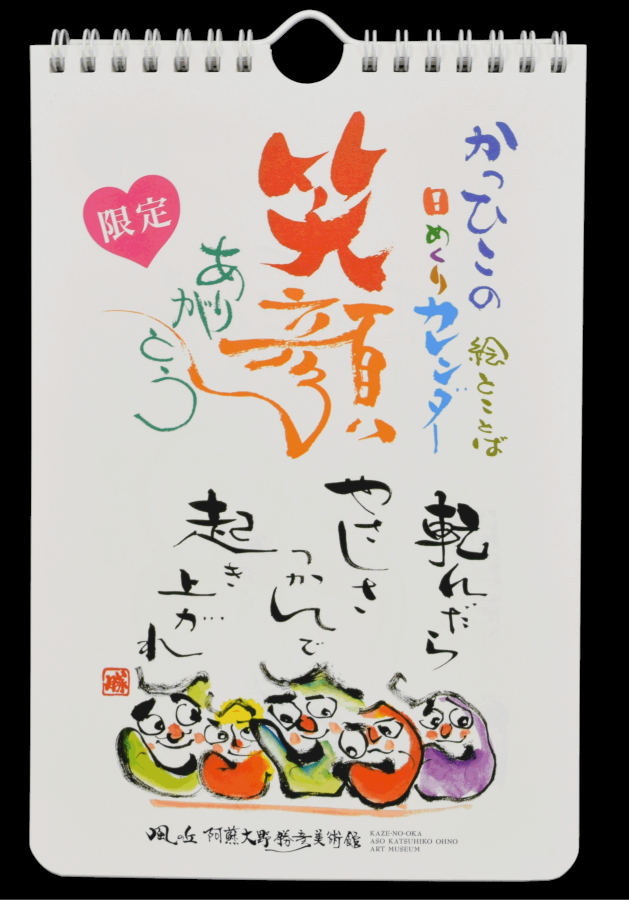 かつひこの
絵とことば
日めくりカレンダー
笑顔
ありがとう
限定
転んだら
やさしさ
つかんで
起き
上がれ
勝
風の丘 阿蘇大野勝彦美術館
KAZE-NO-OKA
ASO KATSUHIKO OHNO
ART MUSEUM